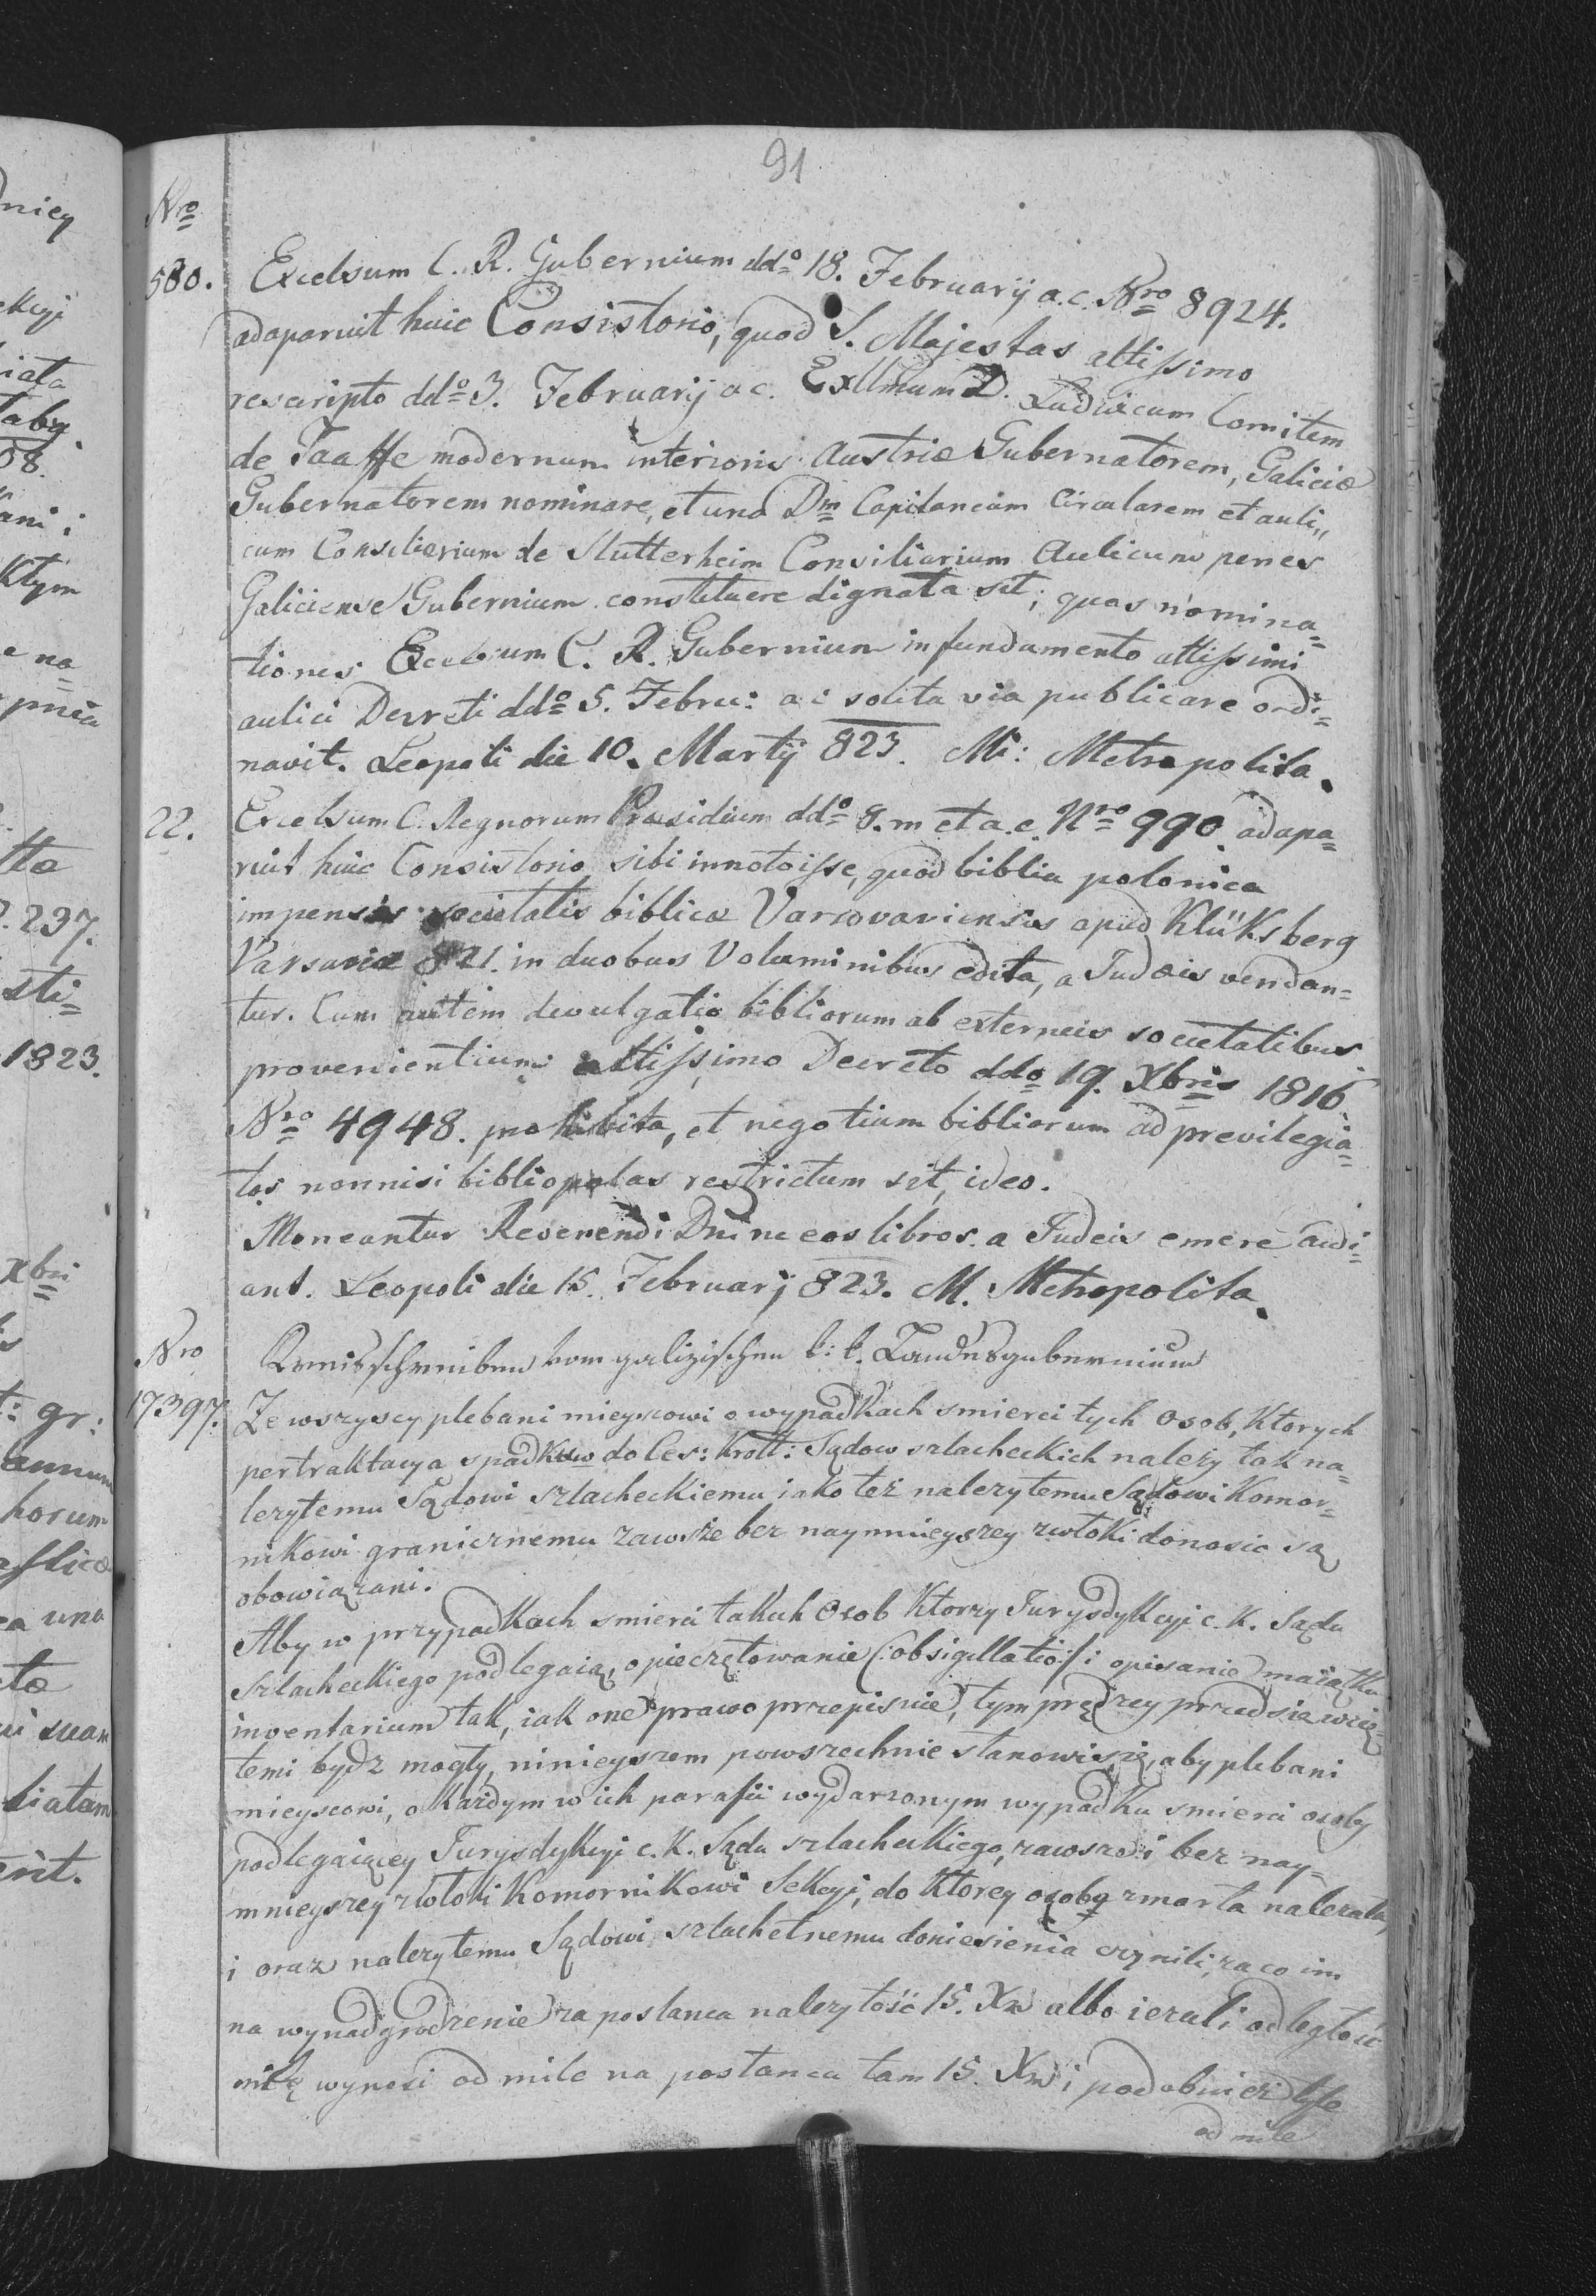 91
Nro
580. Excelsum C. R. Gubernium ddo 18. Februarij a. c. Nro 8924.
adaparuit huic Consistorio, quod S. Majestas altissimo
rescripto ddo 3. Februarij a c. Exllmum D. Ludvicum Comitem
de Taaffe modernum interioris Austriæ Gubernatorem, Galiciæ
Gubernatorem nominare, et una Dm Capitaneum Circularem et auli„
cum Consiliarium de Stutterheim Consiliarium Aulicum penes
Galiciense Gubernium constituere dignata sit; quas nomina=
tiones Excelsum C. R. Gubernium in fundamento altissimi
aulici Decreti ddo 5. Febru: a c solita via publicare ordi=
navit. Leopoli die 10. Martij 823. M: Metropolita.
22. Excelsum C. Regnorum Præsidium ddo 8. m et a. c. Nro 990. adapa=
ruit huic Consistorio sibi innotuisse, quod biblia polonica
impensis societatis biblicæ Varsovaviensis apud Klüksberg
Varsaviæ 821. in duobus Voluminibus edita, a Judæis vendan=
tur. Cum autem devulgatio bibliorum ab externeis societatibus
provenientium altissimo Decreto ddo 19. Xbris 1816
Nro 4948. prohibita, et negotium bibliorum ad previlegia=
tos nonnisi bibliopolas restrictum sit, ideo.
Moneantur Reverendi Dni ne eos libros a Judeis emere audi=
ant. Leopoli die 15. Februarj 823. M. Metropolita.
Nro Kreisschreiben vom galizischen k: k. Landesgubernium
17397. Ze wszyscy plebani mieyscowi o wypadkach smierci tych Osob, Ktorych
pertraktacya spadkow do Ces: Kroll: Sądow szlacheckich należy tak na=
lezytemu Sądowi szlacheckiemu iako też nalezytemu Sądowi Komor=
nikowi granicznemu zawsze bez naymnieyszey zwłoki donosic są
obowiązani.
Aby w przypadkach smierci takich Osob Ktorzy Jurysdykcyi c. K. Sądu
Szlacheckiego podlegaią, opieczętowanie (:obsigillatio:) i opisanie maiątku
inventarium tak, iak one prawo przepisuie, tym prędzey przedsięwzię=
temi bydz mogły, ninieyszem powszechnie stanowi się, aby plebani
mieyscowi, o każdym w ich parafii wydarzonym wypadku smierci osoby
podlegaiącey Jurysdykcyi c. K. Sądu szlacheckiego, zawsze i bez nay=
mnieyszey zwłoki Komornikowi Sekcyi, do Ktorey osoba zmarła nalezała,
i oraz nalezytemu Sądowi szlachetnemu doniesienia czynili, za co im
na wynadgrodzenie za poslanca nalezytość 15. Xr albo ieżeli odległość
milę wynosi od mile na posłanca tam 15. Xr i podobnież
od mile